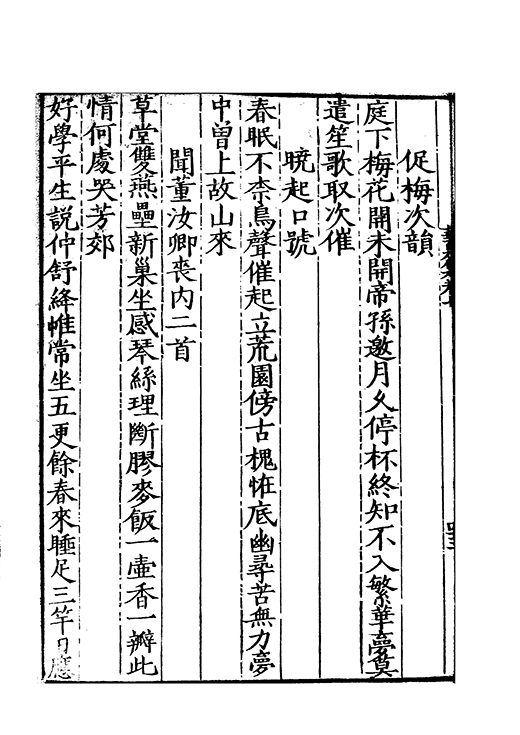 促梅次韻
庭下梅花開未開帝孫邀月久停杯終知不入繁華夢莫
遣笙歌取次催
曉起口號
春眠不柰鳥聲催起立荒園傍古槐恠底幽尋苦無力夢
中曾上故山來
聞董汝卿喪內二首
草堂雙燕壘新巢坐感琴絲理斷膠麥飯一壺香一瓣此
情何處哭芳郊
好學平生說仲舒絳帷常坐五更餘春來睡足三竿日應